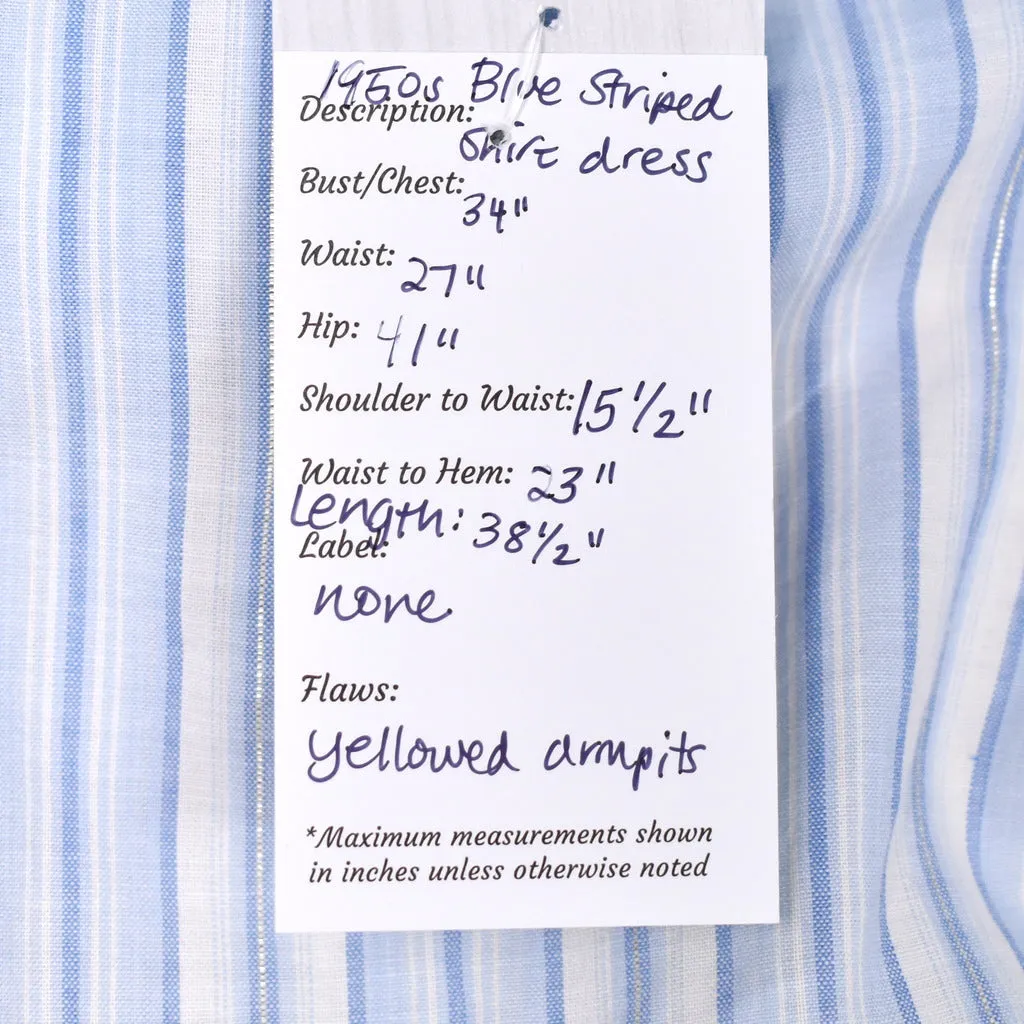 1950s Blue Striped
Description:
Shirt dress
Bust/Chest:
34"
Waist: 27"
Hip: 41"
Shoulder to Waist: 15 1/2"
Waist to Hem: 23"
Length: 38 1/2"
Label:
none
Flaws:
yellowed armpits
*Maximum measurements shown
in inches unless otherwise noted